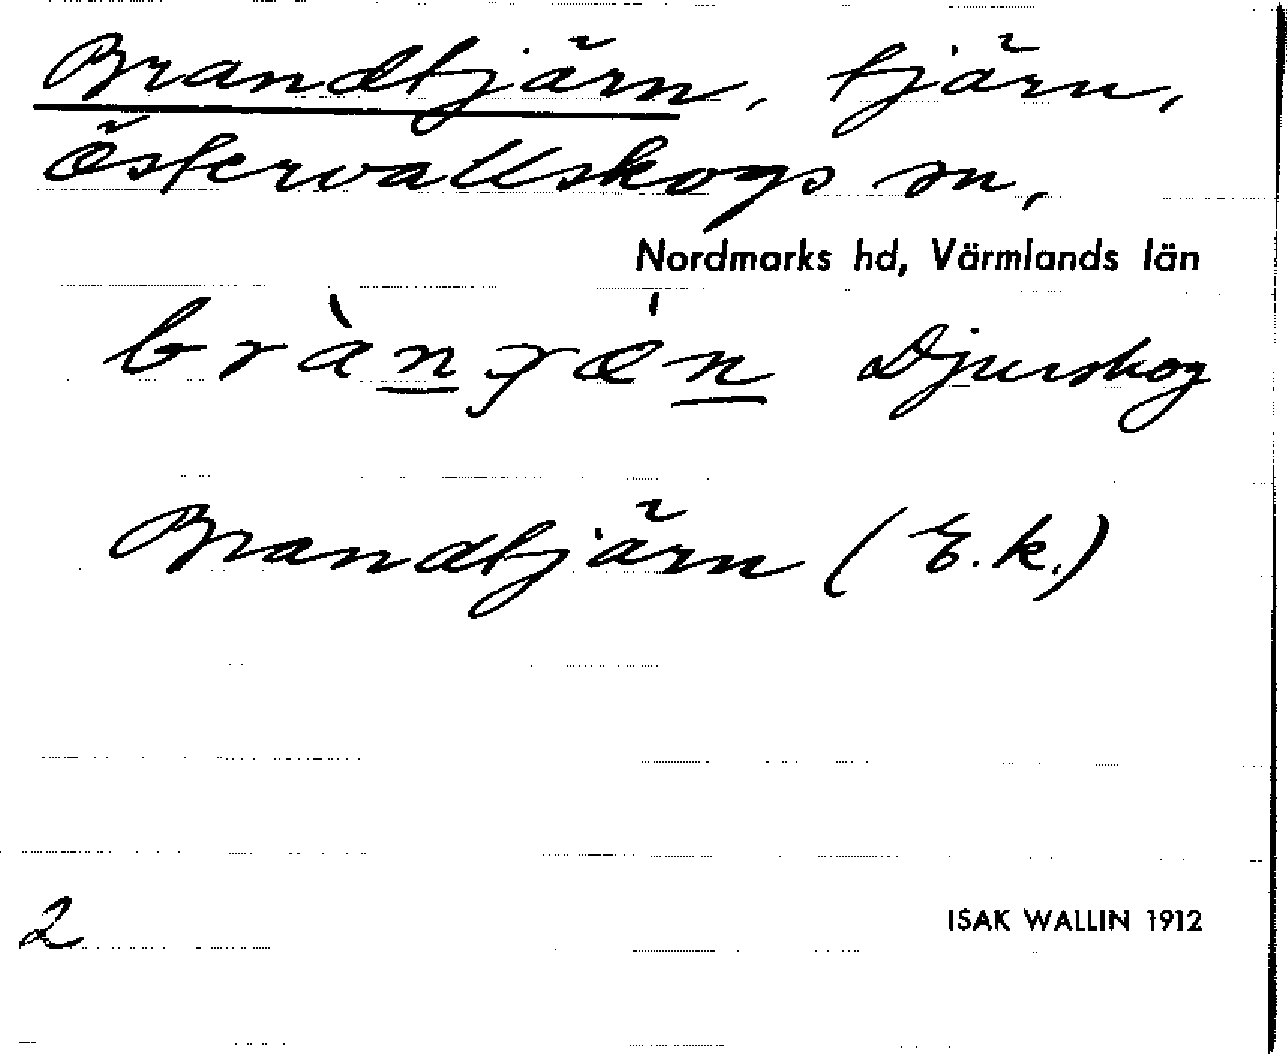 Brandtjärn, tjärn,
Östervallskogs sn,
Nordmarks hd, Värmlands län
Djurskog
Brandtjärn (E.k.)
2
ISAK WALLIN 1912